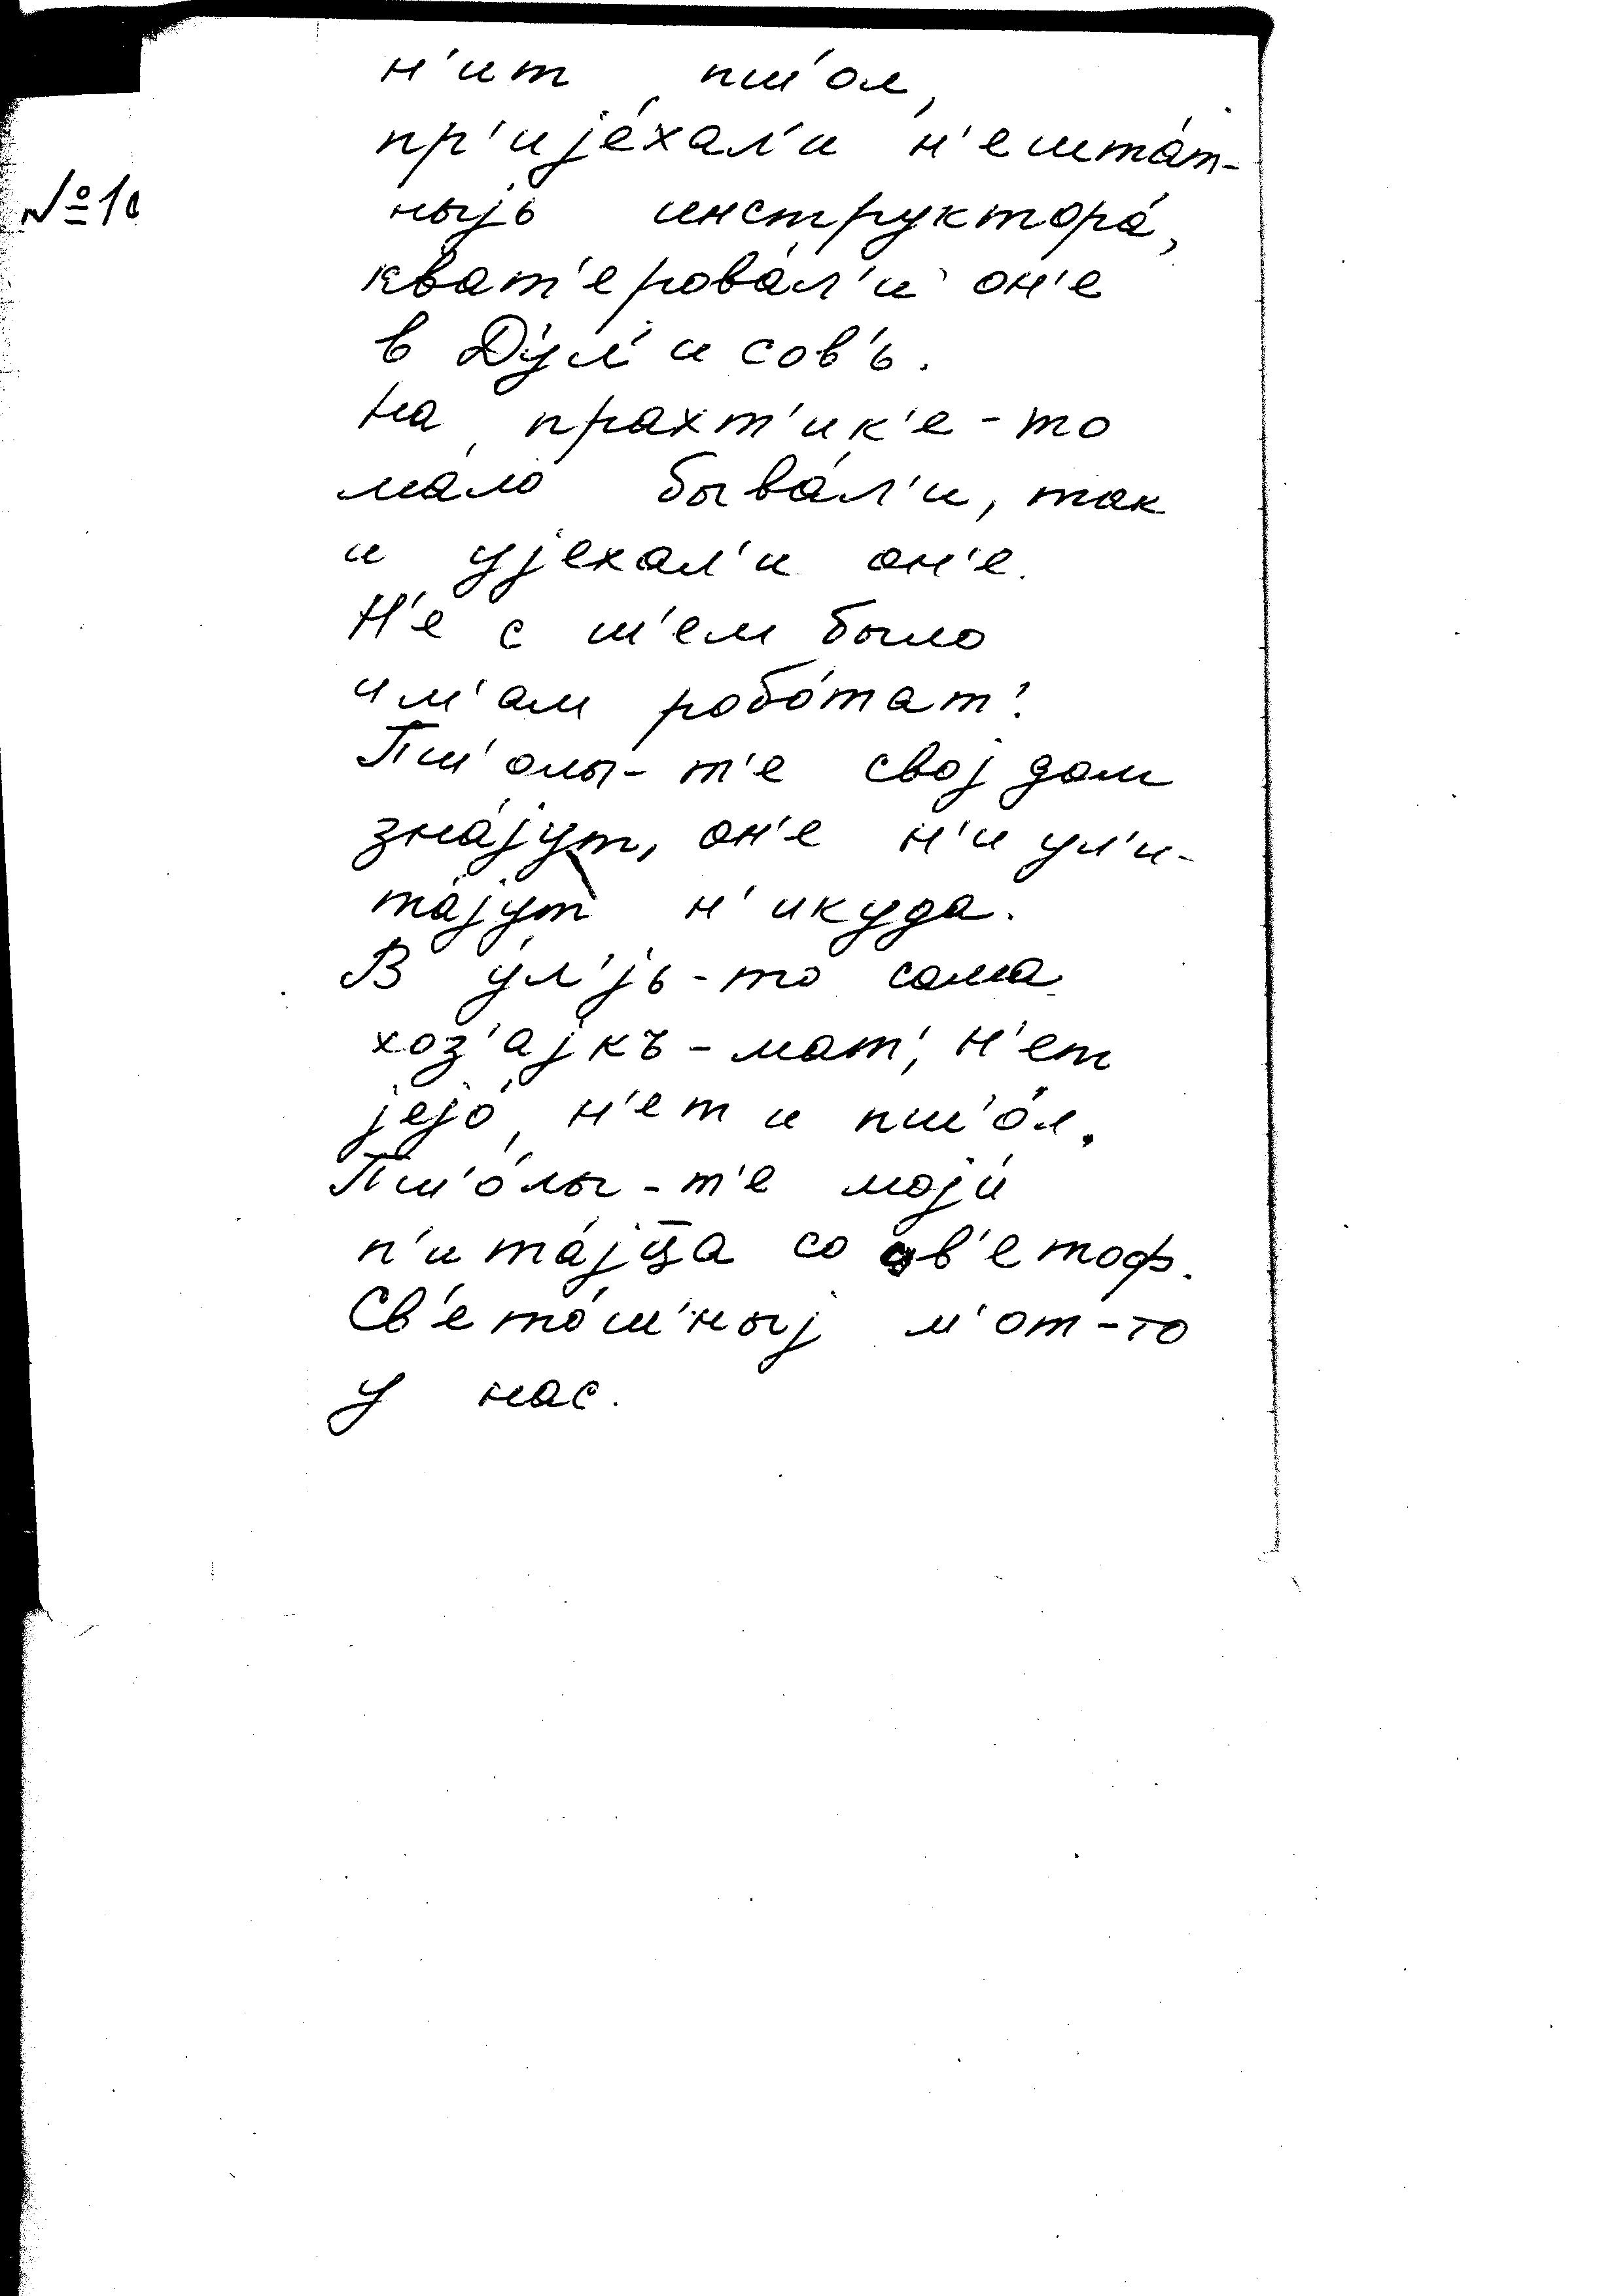 н'ит пш'ол,
пр'ијéхал'и н'ештáт-
№10
ныјь инструкторá,
кват'еровáл'и он'е
в Дýл'исов'ь.
На прахт'ик'е-то
мáло бывáл'и, так
и ујехал'и он'е.
Н'е с ш'ем было
им'ам робóтат'.
Пш'олы-т'е свој дом
знáјут, он'е н'и ул'и-
тáјут н'икуда.
В ýл'јь-то сама
хоз'ајкъ-мат', н'ет
јејó, н'ет и пш'óл.
Пш'óлы-т'е моји́
п'итáјц̄а со цв'етоф.
Св'етóш'ныј м'от-то
у нас.